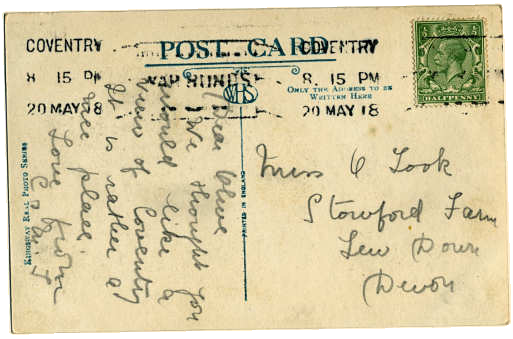 POST CARD
COVENTRY
8. 15 PM
20 MAY 18
WAR BONDS
COVENTRY
8. 15 PM
20 MAY 18
WHS
ONLY THE ADDRESS TO BE
WRITTEN HERE
HALFPENNY
Dear Olive
We thought you
would like a
view of Coventry
It is rather a
nice place.
Love from
KINGSWAY REAL PHOTO SERIES
PRINTED IN ENGLAND
Miss O Took
Stowford Farm
Lew Down
Devon